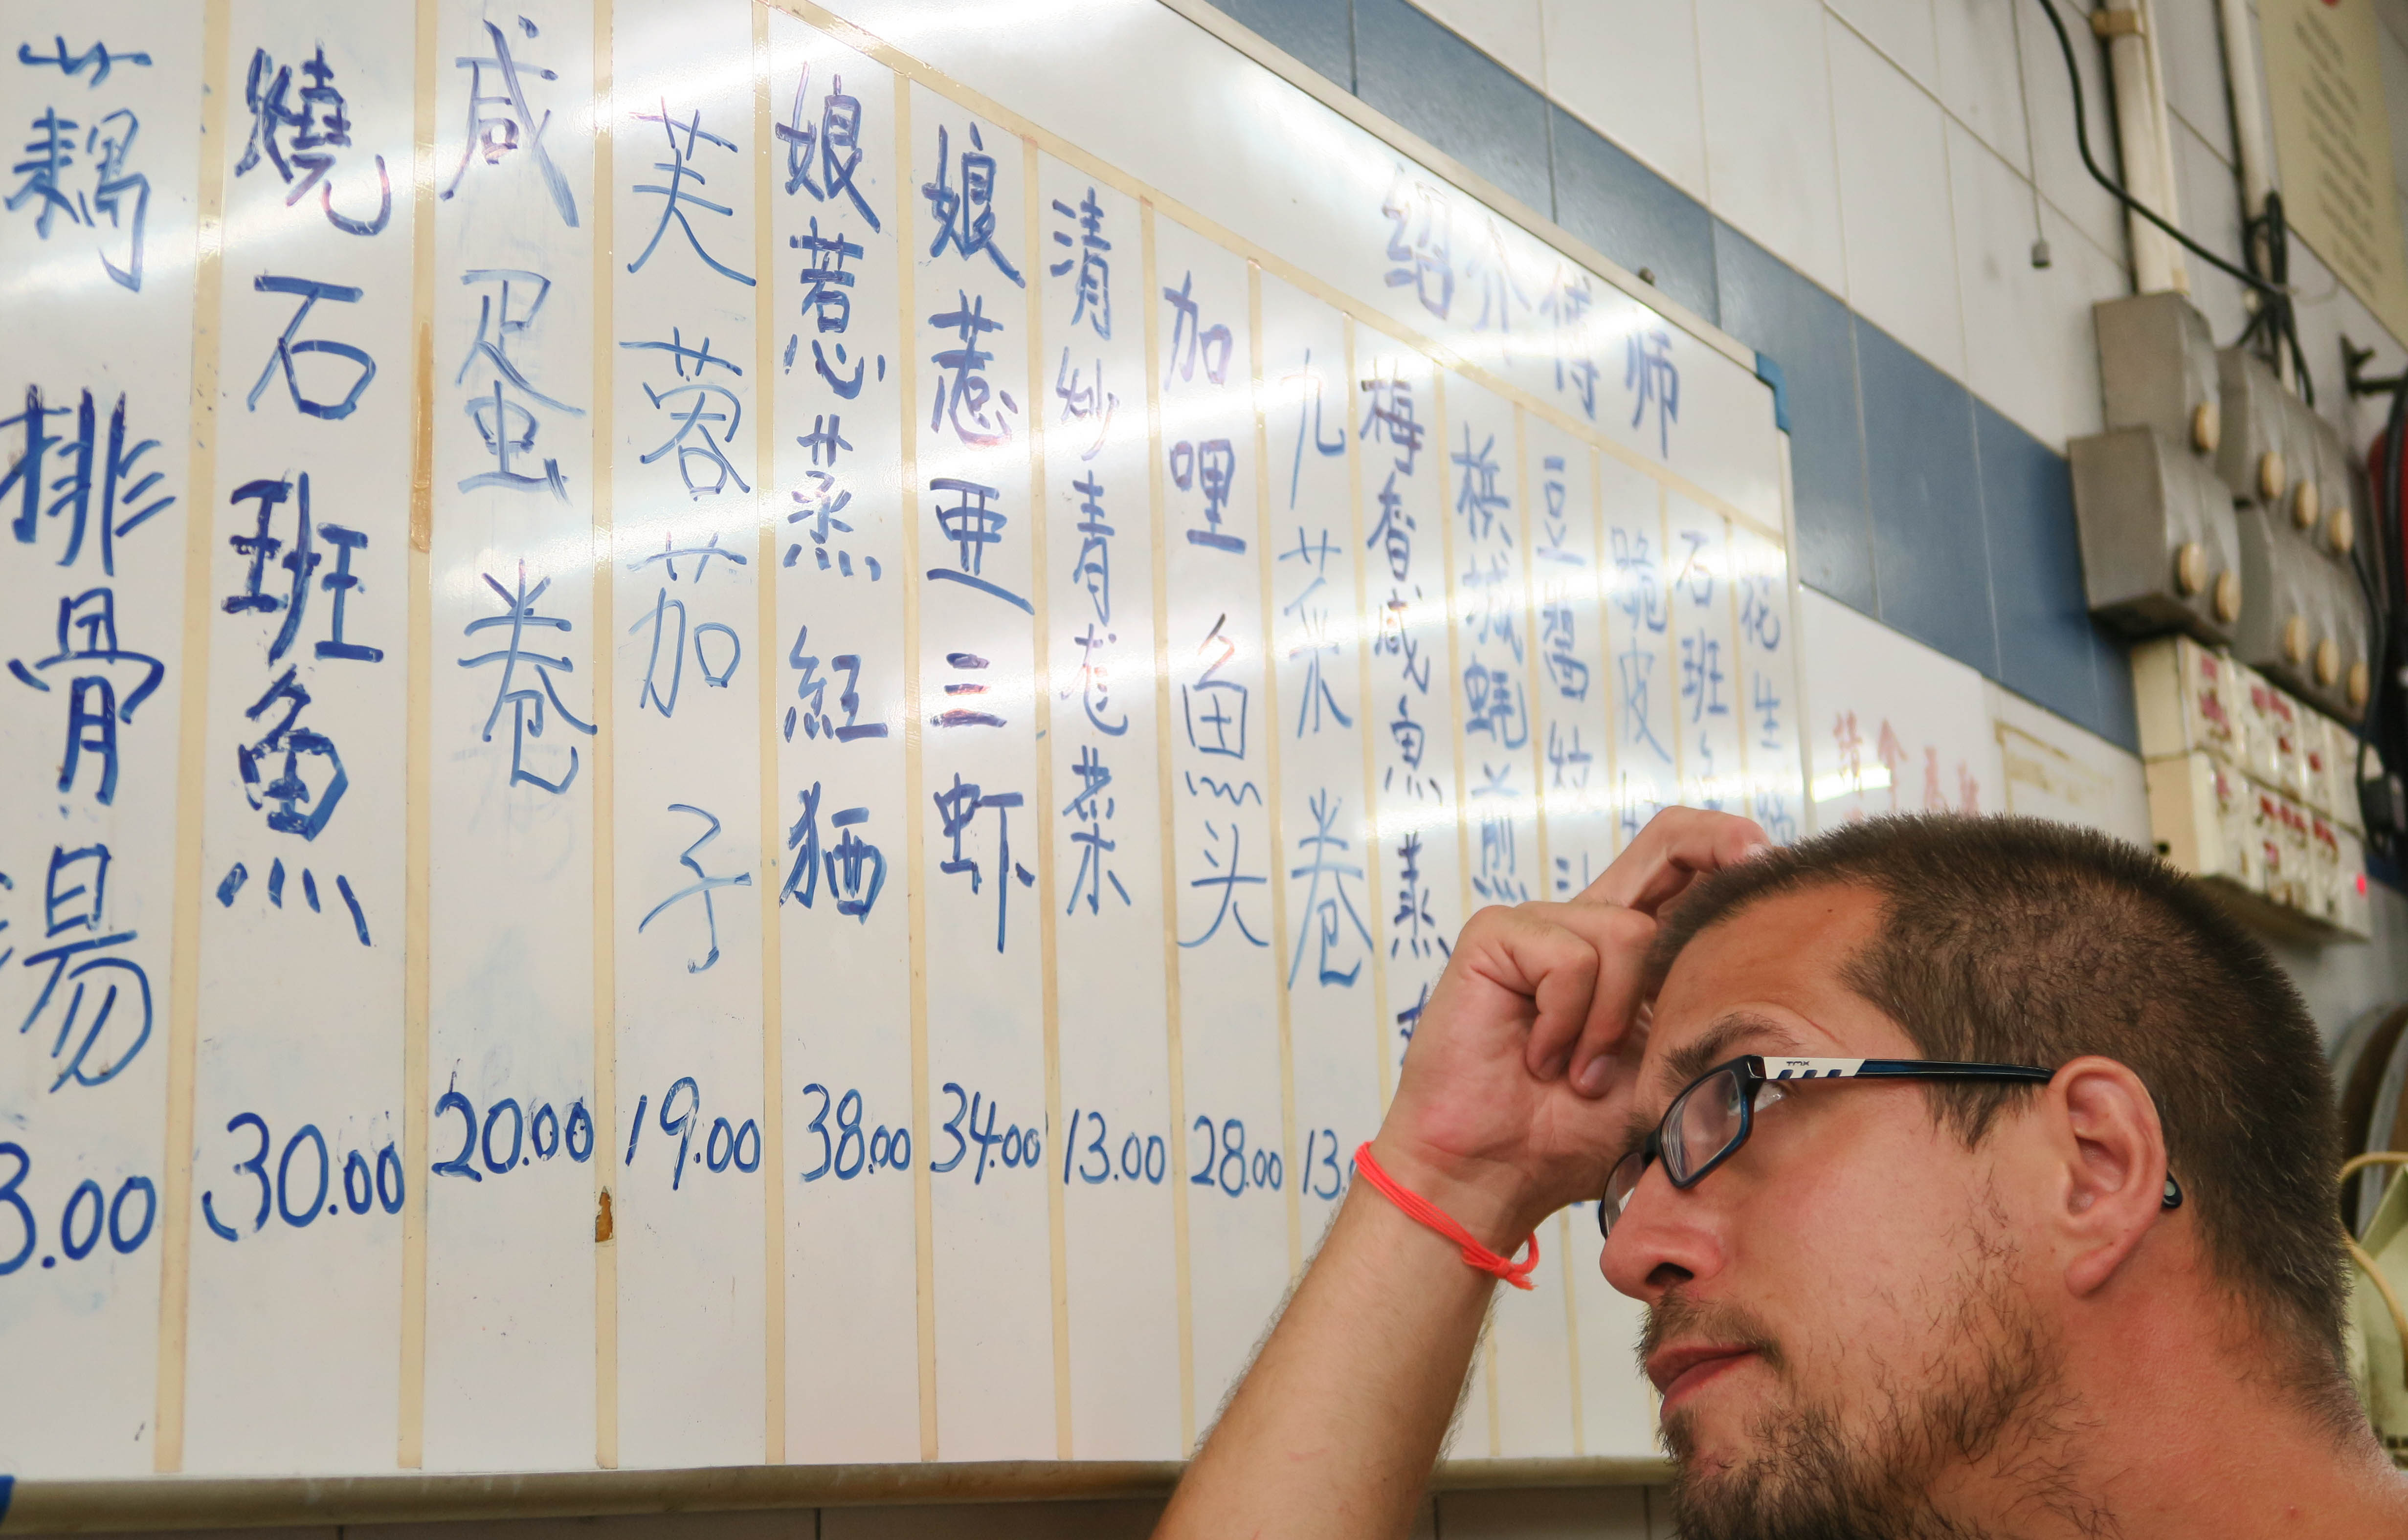 师傅介绍
花生
石班
脆皮
豆醬
槟城蚝煎
梅香咸魚蒸
九菜卷
13.
加哩魚头
28.00
清炒青龙菜
13.00
娘惹亜三虾
34.00
娘惹蒸紅
38.00
芙蓉茄子
19.00
咸蛋卷
20.00
燒石班魚
30.00
藕排骨湯
3.00